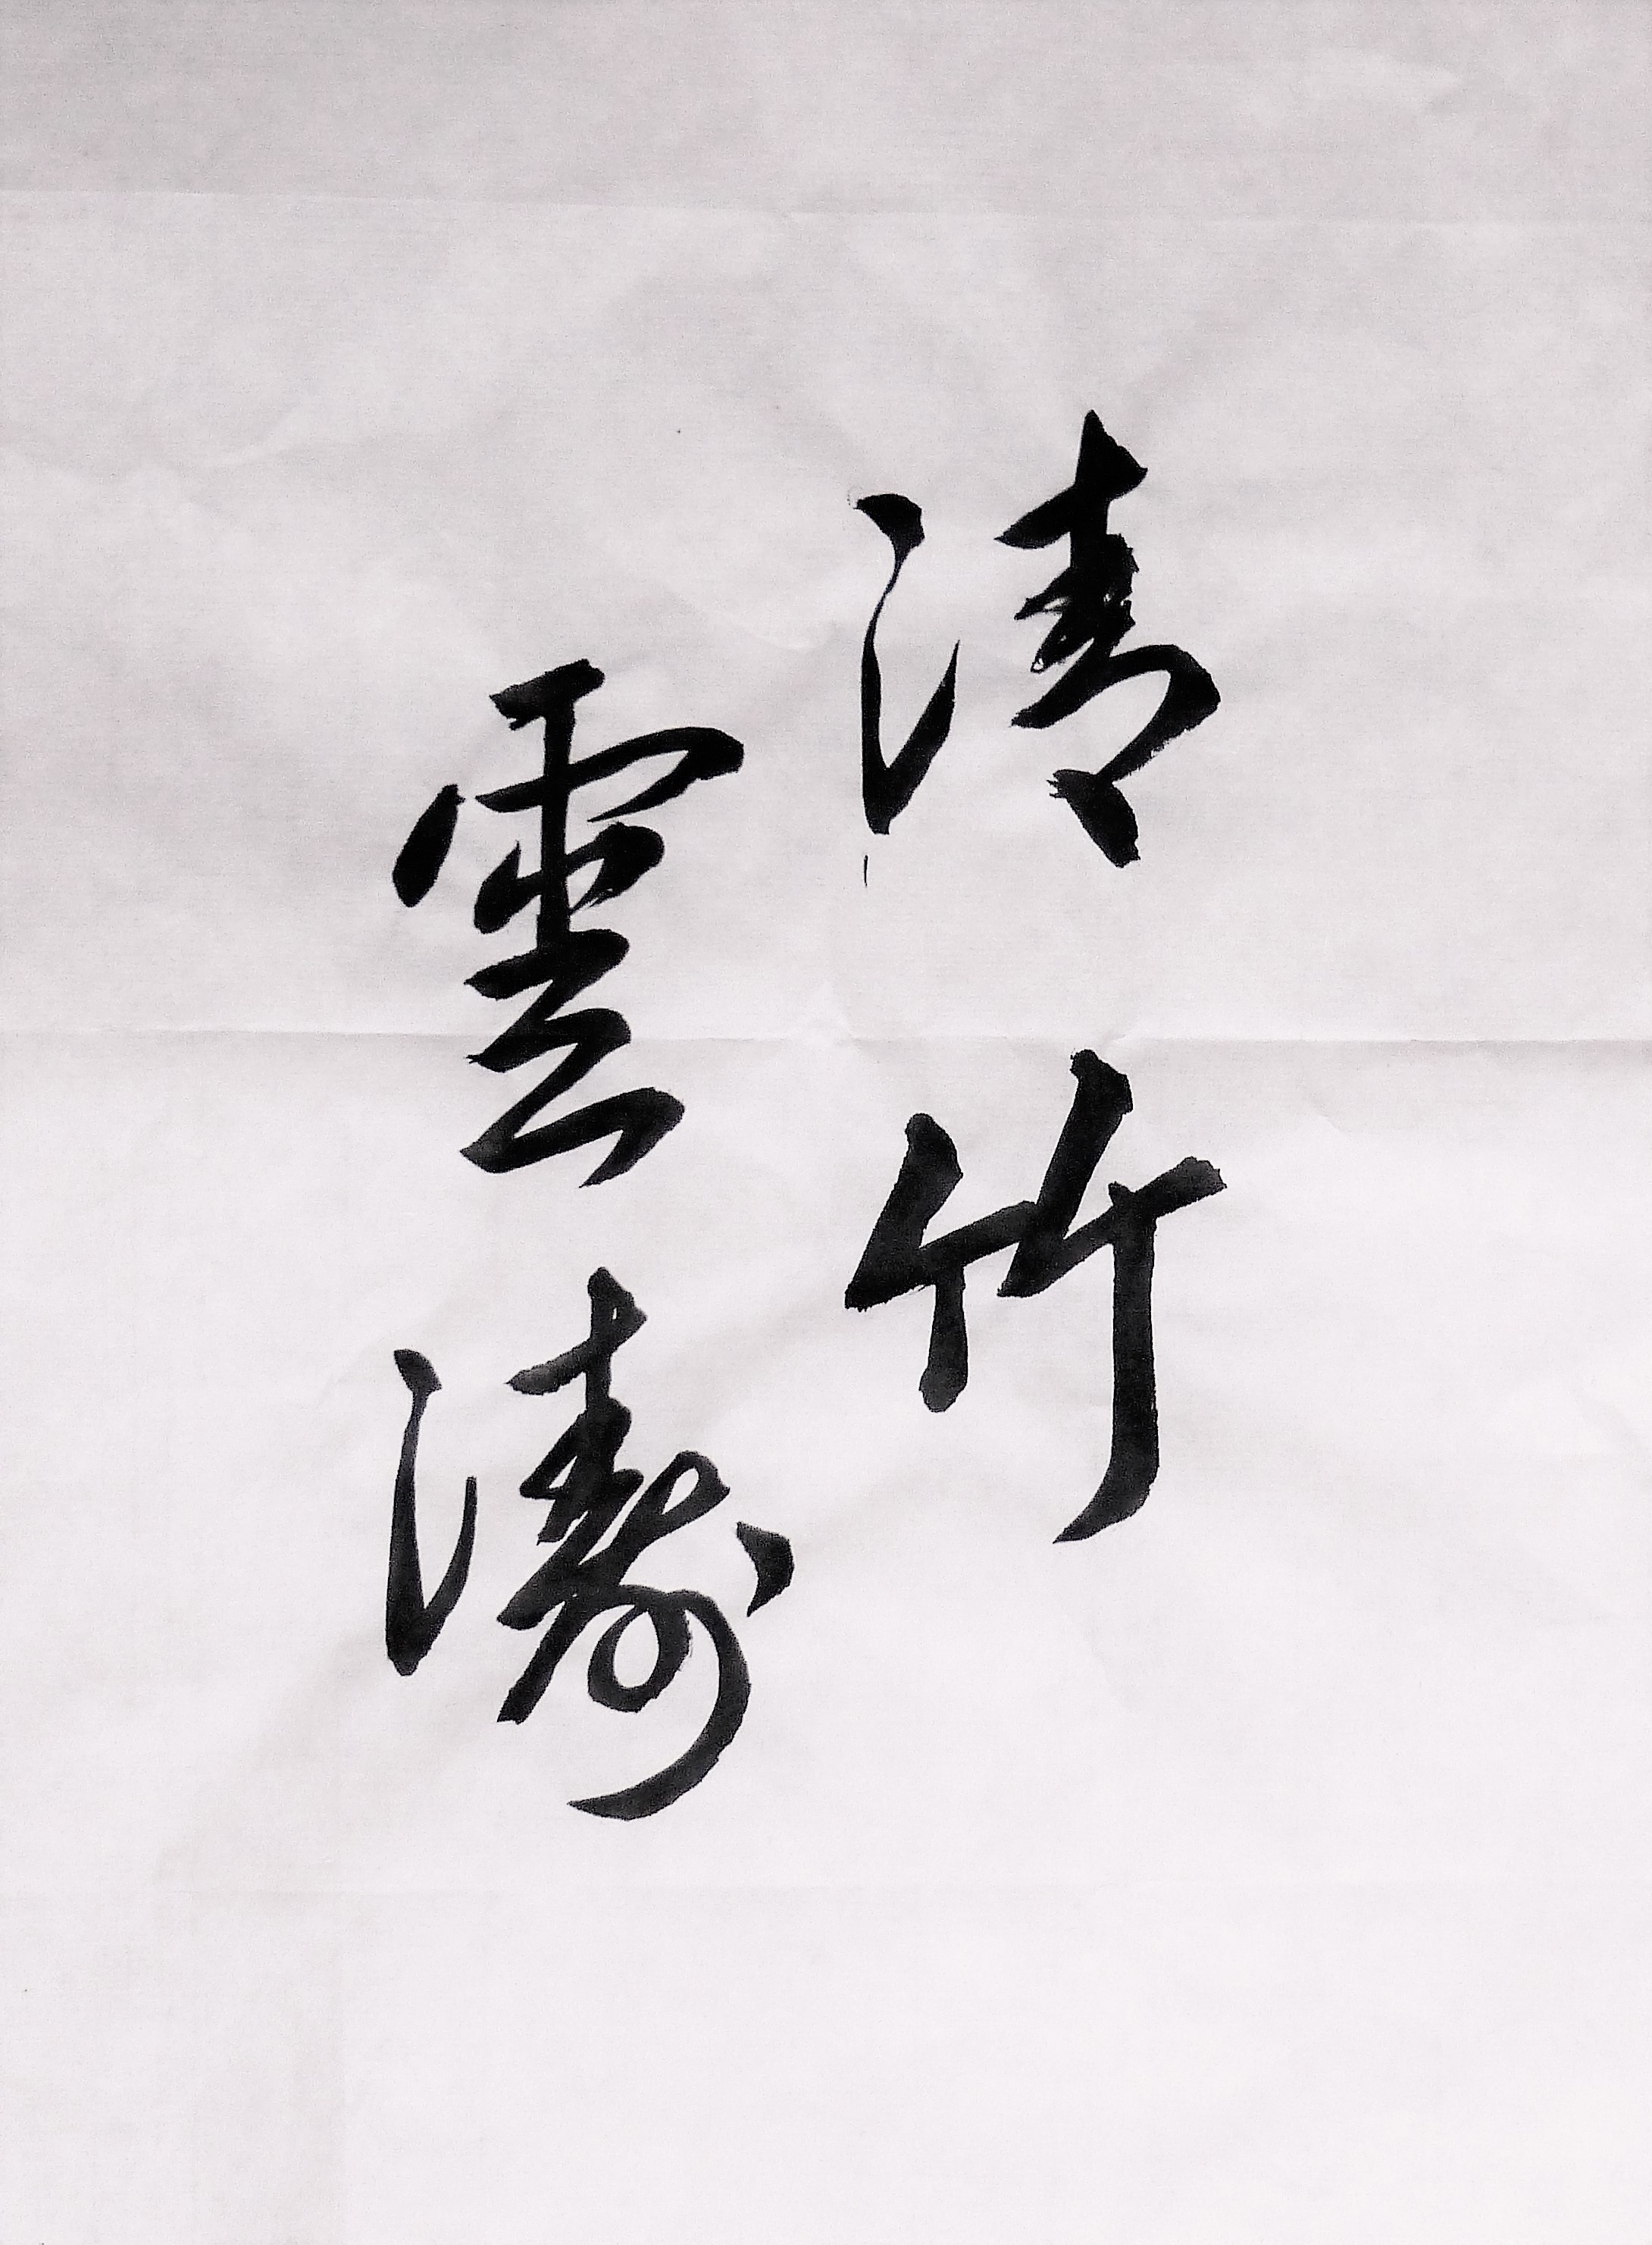 清竹
雲濤